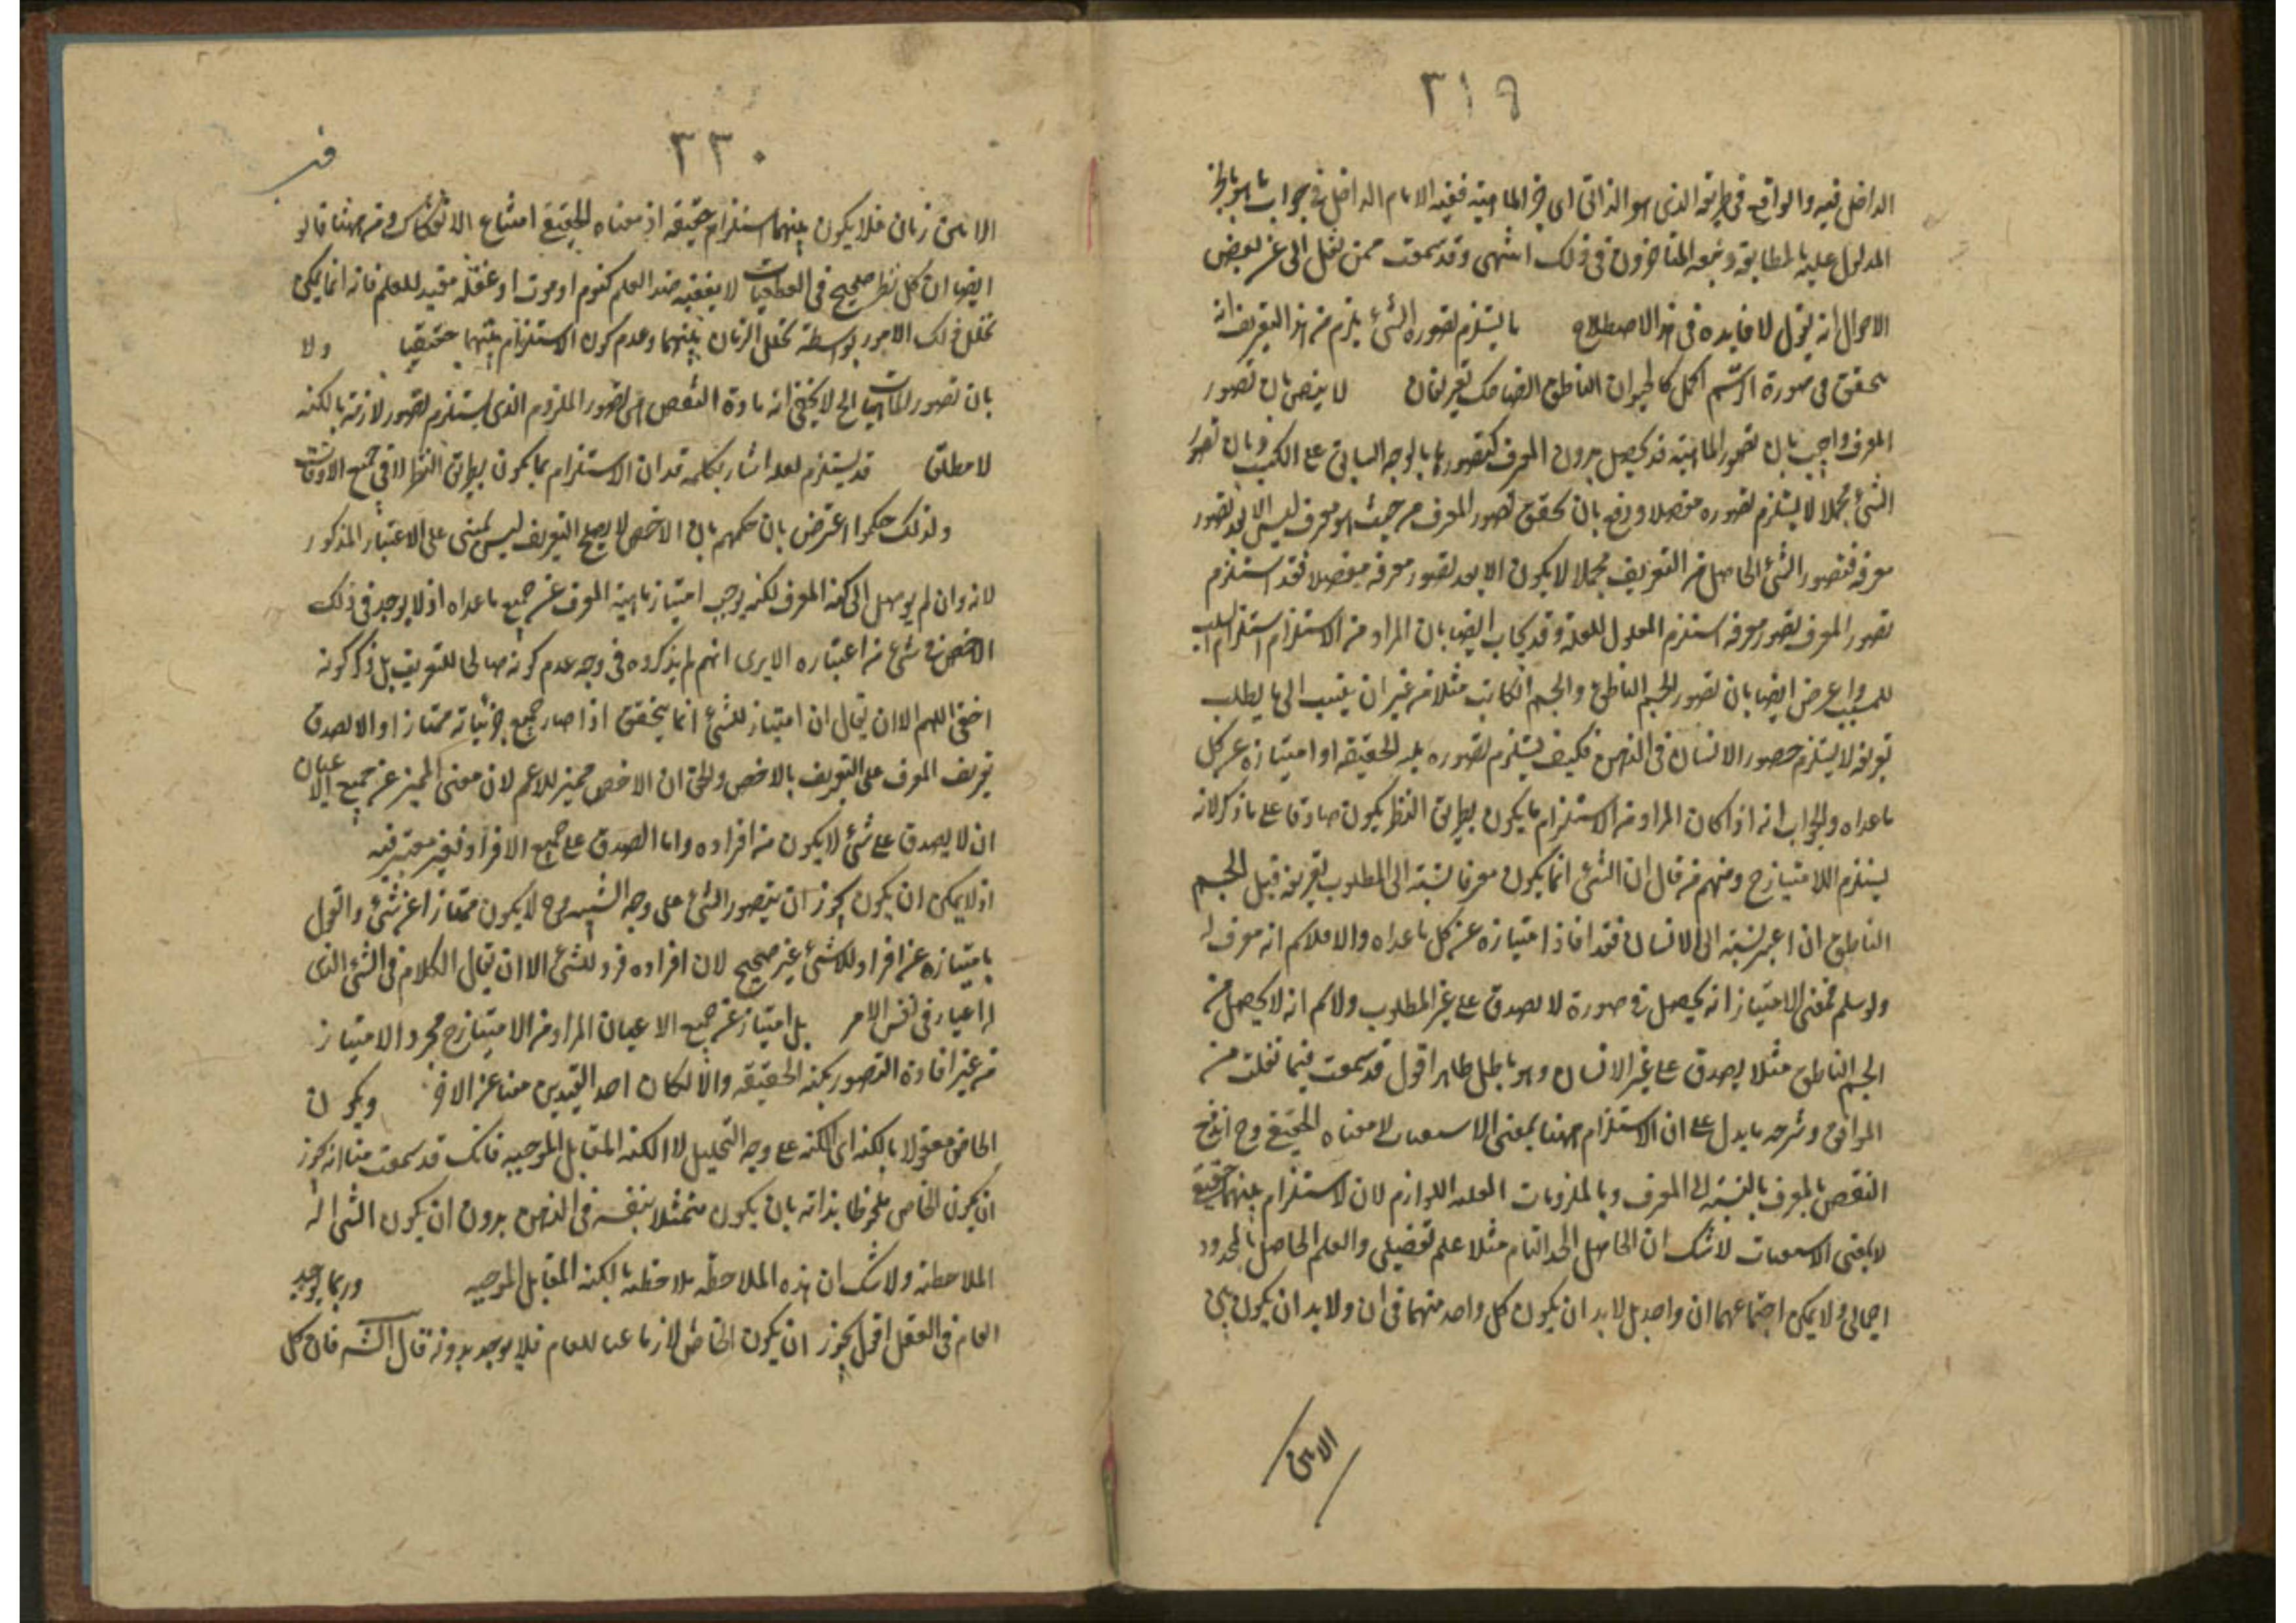 ٣١٩
الداخل فيه والواقع في طريقه الذى هو الذاتى اى جزء الماهية ففيه الايهام الداخل فى جواب ما هو بالجزء
المدلول عليه بالمطابقة وتبعه المتاخرون فى ذلك انتهى وقد سمعت ممن نقل الى عنه بعض
الاحوال انه يقول لا فايده فى هذا الاصطلاح ما يستلزم تصوره الشئ يلزم من هذا التعريف انه
يتحقق فى صورة الرسم اكمل كالحيوان الناطق الضاحك تعريفان لا ينقض بان تصور
المعرف واجيب بان تصور الماهية قد يحصل بدون المعرف كتصورها بالوجه السابق على الكسب وبان تصور
الشئ مجملا لا يستلزم تصوره مفصلا ودفع بان تحقق تصور المعرف من حيث هو معرف ليس الا بعد تصور
معرفه فتصور الشئ الحاصل من التعريف مجملا لا يكون الا بعد تصور معرفه مفصلا فقد استلزم
تصور المعرف تصور معرفه استلزم المعلول للعلة وقد يجاب ايضا بان المراد من الاستلزام استلزام السبب
للمسبب واعرض ايضا بان تصور الجسم الناطق والجسم الكاتب مثلا من غير ان ينتسب الى ما يطلب
تعريفه لا يستلزم حصور الانسان فى الذهن فكيف يستلزم تصوره بكنه الحقيقه او امتيازه عن كل
ما عداه والجواب انه اذا كان المراد من الاستلزام ما يكون بطريق النظر يكون صادقا على ما ذكر لانه
يستلزم الامتياز ح ومنهم من قال ان الشئ انما يكون معرفا بنسبته الى المطلوب تعريفه قبل الجسم
الناطق ان اعتبر نسبته الى الانسان فقد افاد امتيازه عن كل ما عداه والا فلا نم انه معرف له
ولو سلم فمعنى الامتياز انه يحصل فى صورة لا تصدق على غير المطلوب ولا نم انه لا يحصل من
الجسم الناطق مثلا يصدق على غير الانسان وهو باطل ظاهرا اقول قد سمعت فيما نقلت من
المواقف وشرحه ما يدل على ان الاستلزام ههنا بمعنى الاستعقاب لا معناه الحقيقى وح اندفع
النقض بالمعرف بالنسبة الى المعرف وبالملزومات المعلمه اللوازم لان الاستلزام بينهما حقيقى
لا بمعنى الاستعقاب لا شك ان الحاصل الحد التام مثلا علم تفصيلى والعلم الحاصل بالمحدود
اجمالى ولا يمكن اجتماعهما ان واحد بل لابد ان يكون كل واحد منهما فى ان ولا بد ان يكون بين
الانين
٣٢٠
الانين زمان فلا يكون بينهما استلزام حقيقه اذ معناه الحقيقى امتناع الانفكاك ومن ههنا قالو
ايضا ان كل نظر صحيح فى القطعيات لا يعقبه ضد العلم كنوم او موت او غفله مفيد للعلم فانه انما يمكن
تخلل تلك الامور بواسطة تخلل الزمان بينهما وعدم كون الاستلزام بينهما حقيقيا ولا
بان تصور الماهيات الخ لا يخفى انه مادة النقض اى تصور الملزوم الذى يستلزم تصور لازمه بالكنه
لا مطلق قد يستلزم لعله اشار بكلمة قد ان الاستلزام بما يكون بطريق النظر لا فى جميع الاوقات
ولذلك حكموا اعترض بان حكمهم بان الاخص لا يصلح التعريف ليس بمبنى على الاعتبار المذكور
لانه وان لم يوصل الى كنه المعرف لكنه يوجب امتياز ماهية المعرف عن جميع ما عداه اذ لا يوجد فى ذلك
الاخص فى شئ من اعتباره الا يرى انهم لم يذكروه فى وجه عدم كونه صالحا للتعريف بل ذكر كونه
اخفى اللهم الا ان يقال ان امتياز للشئ انما يتحقق اذا صار جميع جزئياته ممتازا والا لصدق
تعريف المعرف على التعريف بالاخص والحق ان الاخص مميز للاعم لان معنى المميز عن جميع الاعيان
ان لا يصدق على شئ لا يكون من افراده واما الصدق على جميع الافراد فغير معتبر فيه
اذ لا يمكن ان يكون يجوز ان يتصور الشئ على وجه الشيئيه وح لا يكون ممتازا عن شئ والقول
بامتيازه عن افراد للاشئ غير صحيح لان افراده فرد للشئ الا ان يقال الكلام فى الشئ الذى
له اعيار فى نفس الامر بل امتياز عن جميع الاعيان المراد من الامتياز ح مجرد الامتياز
من غير افادة التصور بكنه الحقيقه والا لكان احد القيدين مغنا عن الاخر ويكون
الخاص معقولا بالكنه اى الكنه على وجه التحليل لا الكنه المقابل للوجيه فانك قد سمعت منا انه يجوز
ان يكون الخاص ملحوظا بذاته بان يكون متمثلا بنفسه فى الذهن بدون ان يكون الشئ اله
الملاحظه ولا شك ان هذه الملاحظه ملاحظه بالكنه المقابل الموجيه وربما يوجد
العام فى العقل اقول يجوز ان يكون الخاص لازما عنا للعام فلا يوجد بدونه قال الشه فان كل